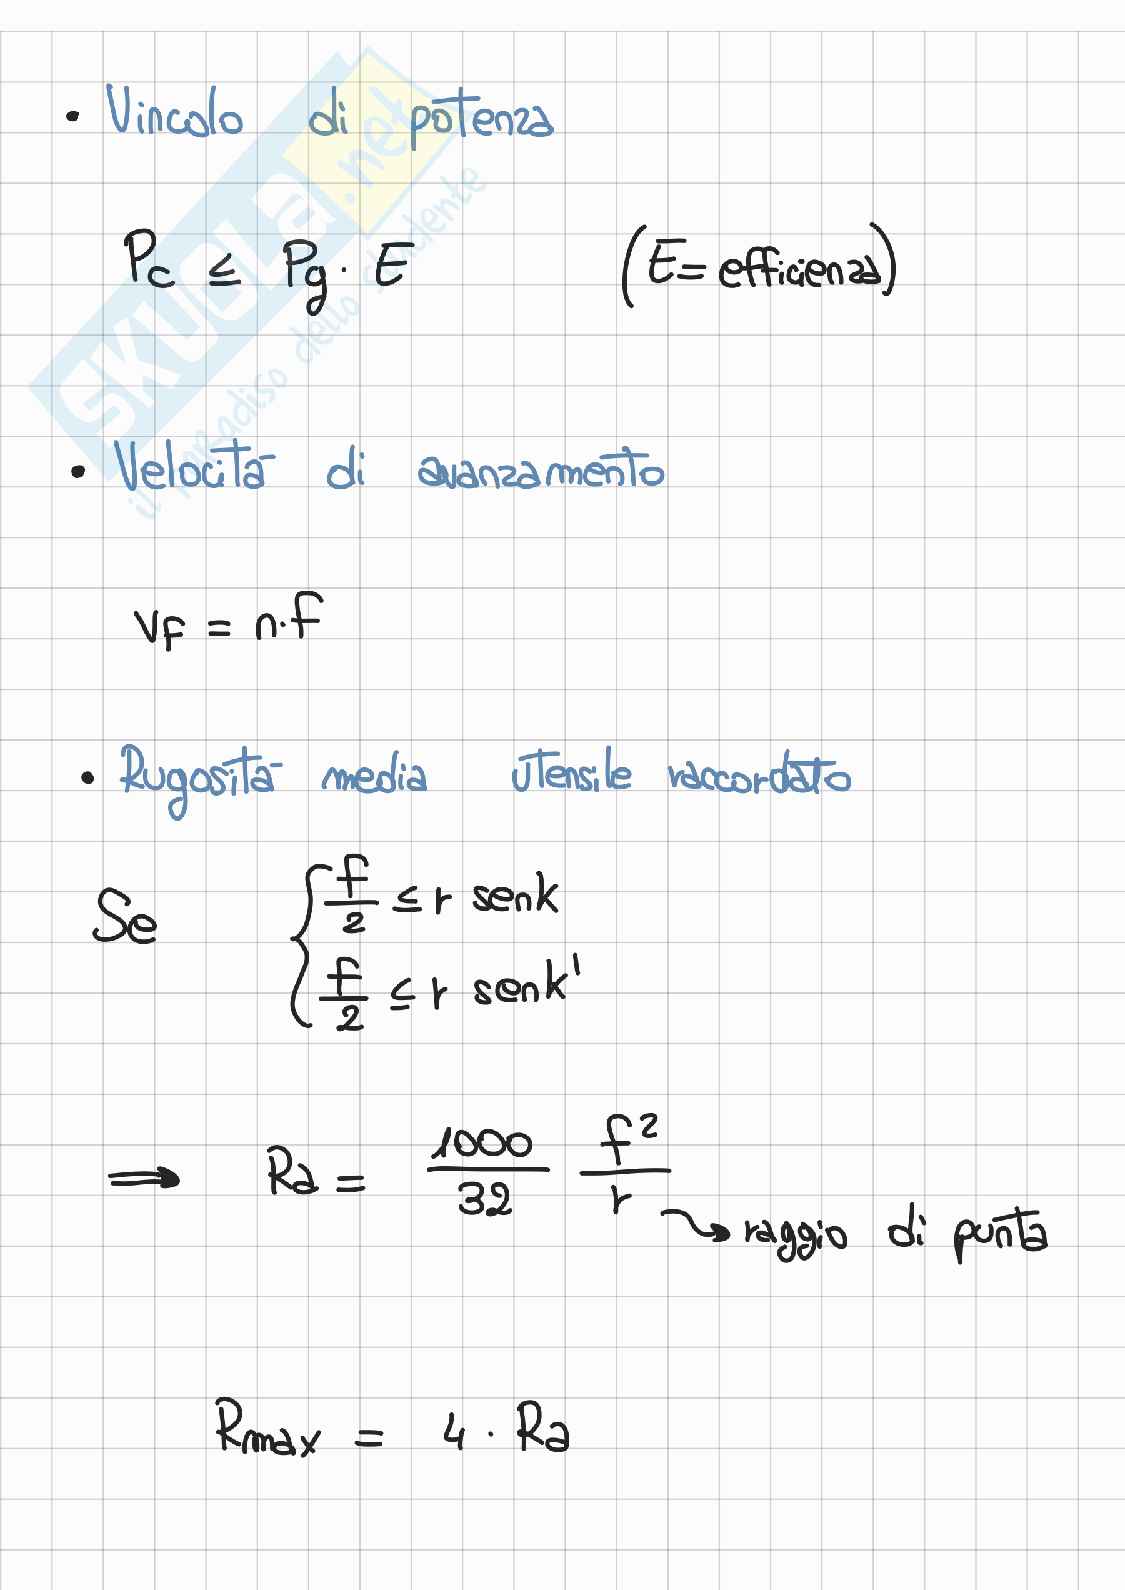 • Vincolo di potenza
Pc ≤ Pg · E (E = efficienza)
• Velocità di avanzamento
vF = n·f
• Rugosità media utensile raccordato
Se { f/2 ≤ r senk
f/2 ≤ r senk'
⇒ Ra = 1000/32 f²/r → raggio di punta
Rmax = 4 · Ra
SKUOLA.net
il paradiso dello studente